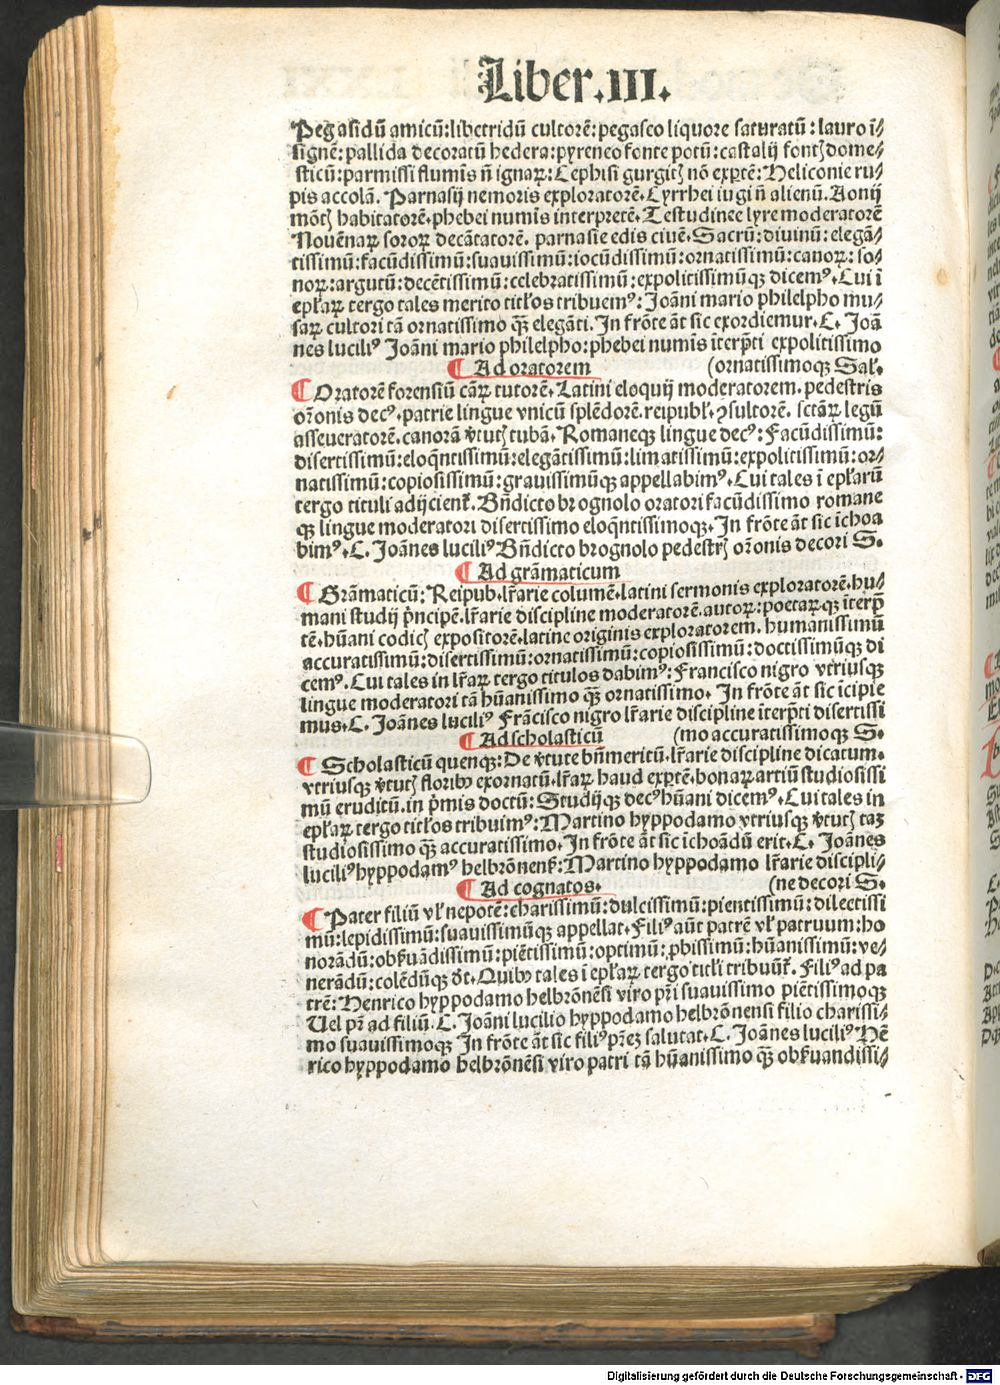 Liber.III.
Pegasidū amicū:libetridū cultorē:pegaseo liquore saturatū:lauro ī⸗
signē:pallida decoratū hedera:pyreneo fonte potū:castalij fontꝭ dome⸗
sticū:parmissi flumīs n̄ ignaꝝ:Cephisi gurgitꝭ nō exꝑtē:Heliconie ru⸗
pis accolā. Parnasij nemoris exploratorē.Cyrrhei iugi n̄ alienū.Aonij
mōtꝭ habitatorē.phebei numīs interpretē.Testudinee lyre moderatorē
Nouēnaꝝ soroꝝ decātatorē. parnasie edis ciuē.Sacrū:diuinū:elegā⸗
tissimū:facūdissimū:suauissimū:iocūdissimū:ornatissimū:canoꝝ:so⸗
noꝝ:argutū:decētissimū:celebratissimū:expolitissimūqꝫ dicemꝰ.Cui ī
ep̄laꝝ tergo tales merito titl̓os tribuemꝰ:Joāni mario philelpho mu⸗
saꝝ cultori tā ornatissimo qꝫ̄ elegāti.In frōte āt sic exordiemur.C. Joā
nes luciliꝰ Joāni mario philelpho:phebei numīs īterp̄ti expolitissimo
¶ Ad oratorem (ornatissimoqꝫ Sal̓.
¶ Oratorē forensiū cāꝝ tutorē.Latini eloquij moderatorem.pedestris
or̄onis decꝰ.patrie lingue vnicū splēdorē.reipubl̓.ꝯsultorē.sctāꝝ legū
asseueratorē.canorā v̓tutꝭ tubā.Romaneqꝫ lingue decꝰ:Facūdissimū:
disertissimū:eloq̄ntissimū:elegātissimū:limatissimū:expolitissimū:or⸗
natissimū:copiosissimū:grauissimūqꝫ appellabimꝰ.Cui tales ī ep̄larū
tergo tituli adijcient̓.Bn̄dicto brognolo oratori facūdissimo romane
qꝫ lingue moderatori disertissimo eloq̄ntissimoqꝫ.In frōte āt sic īchoa
bimꝰ.C. Joānes luciliꝰ Bn̄dicto brognolo pedestrꝭ or̄onis decori S.
¶ Ad grāmaticum
¶ Grāmaticū:Reipub.lr̄arie columē.latini sermonis exploratorē.hu⸗
mani studij p̄ncipē.lr̄arie discipline moderatorē.autoꝝ:poetaꝝqꝫ īterp̄
tē.hūani codicꝭ expositorē.latine originis exploratorem.humanissimū
accuratissimū:disertissimū:ornatissimū:copiosissimū:doctissimūqꝫ di
cemꝰ.Cui tales in lr̄aꝝ tergo titulos dabimꝰ:Francisco nigro vtriusqꝫ
lingue moderatori tā hūanissimo qꝫ̄ ornatissimo. In frōte āt sic īcipie
mus.C. Joānes luciliꝰ Frācisco nigro lr̄arie discipline īterp̄ti disertissi
¶ Ad scholasticū (mo accuratissimoqꝫ S.
¶ Scholasticū quenqꝫ:De v̓tute bn̄meritū.lr̄arie discipline dicatum.
vtriusqꝫ v̓tutꝭ floribꝫ exornatū.lr̄aꝝ haud exꝑtē.bonaꝝ artiū studiosissi
mū eruditū.in p̄mis doctū:Studijqꝫ decꝰ hūani dicemꝰ.Cui tales in
ep̄laꝝ tergo titl̓os tribuimꝰ:Martino hyppodamo vtriusqꝫ v̓tutꝭ taꝫ
studiosissimo qꝫ̄ accuratissimo.In frōte āt sic īchoādū erit.C. Joānes
luciliꝰ hyppodamꝰ helbrōnen̓:Martino hyppodamo lr̄arie discipli⸗
¶ Ad cognatos. (ne decori S.
¶ Pater filiū vl̓ nepotē:charissimū:dulcissimū:pientissimū:dilectissi
mū:lepidissimū:suauissimūqꝫ appellat.Filiꝰ aūt patrē vl̓ patruum:ho
norādū:obẜuādissimū:piētissimū:optimū:ꝓbissimū:hūanissimū:ve⸗
nerādū:colēdūqꝫ d̓t.Quibꝫ tales ī ep̄laꝝ tergo titl̓i tribuūt̓.Filiꝰ ad pa
trē:Henrico hyppodamo helbrōnēsi viro pr̄i suauissimo piētissimoqꝫ
Uel pr̄ ad filiū.C. Joāni lucilio hyppodamo helbrōnensi filio charissi⸗
mo suauissimoqꝫ In frōte āt sic filiꝰ pr̄eꝫ salutat.C. Joānes luciliꝰ Hē
rico hyppodamo helbrōnēsi viro patri tā hūanissimo qꝫ̄ obẜuandissi⸗
Digitalisierung gefördert durch die Deutsche Forschungsgemeinschaft - DFG